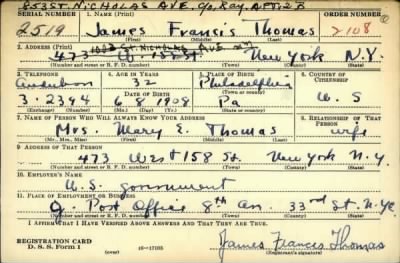 853 ST. NICHOLAS AVE. c/o Ray. APT. 2B
SERIAL NUMBER 1. NAME (Print) ORDER NUMBER
2519 James Francis Thomas 2108
(First) (Middle) (Last)
2. ADDRESS (Print)
473 W. 158 St. New York N.Y.
(Number and street or R. F. D. number) (Town) (County) (State)
3. TELEPHONE 4. AGE IN YEARS 5. PLACE OF BIRTH 6. COUNTRY OF CITIZENSHIP
Audubon 32 Philadelphia
(Town or county)
DATE OF BIRTH
3-2394 6 8 1908 Pa U.S
(Exchange) (Number) (Mo.) (Day) (Yr.) (State or country)
7. NAME OF PERSON WHO WILL ALWAYS KNOW YOUR ADDRESS 8. RELATIONSHIP OF THAT PERSON
Mrs. Mary E. Thomas wife
(Mr., Mrs., Miss) (First) (Middle) (Last)
9. ADDRESS OF THAT PERSON
473 West 158 St. New York N.Y.
(Number and street or R. F. D. number) (Town) (County) (State)
10. EMPLOYER'S NAME
U.S. government
11. PLACE OF EMPLOYMENT OR BUSINESS
G. Post Office 8th av. 33rd St. N.Y.C
(Number and street or R. F. D. number) (Town) (County) (State)
I AFFIRM THAT I HAVE VERIFIED ABOVE ANSWERS AND THAT THEY ARE TRUE.
REGISTRATION CARD
D. S. S. Form 1 (over) 16—17105 James Francis Thomas
(Registrant's signature)